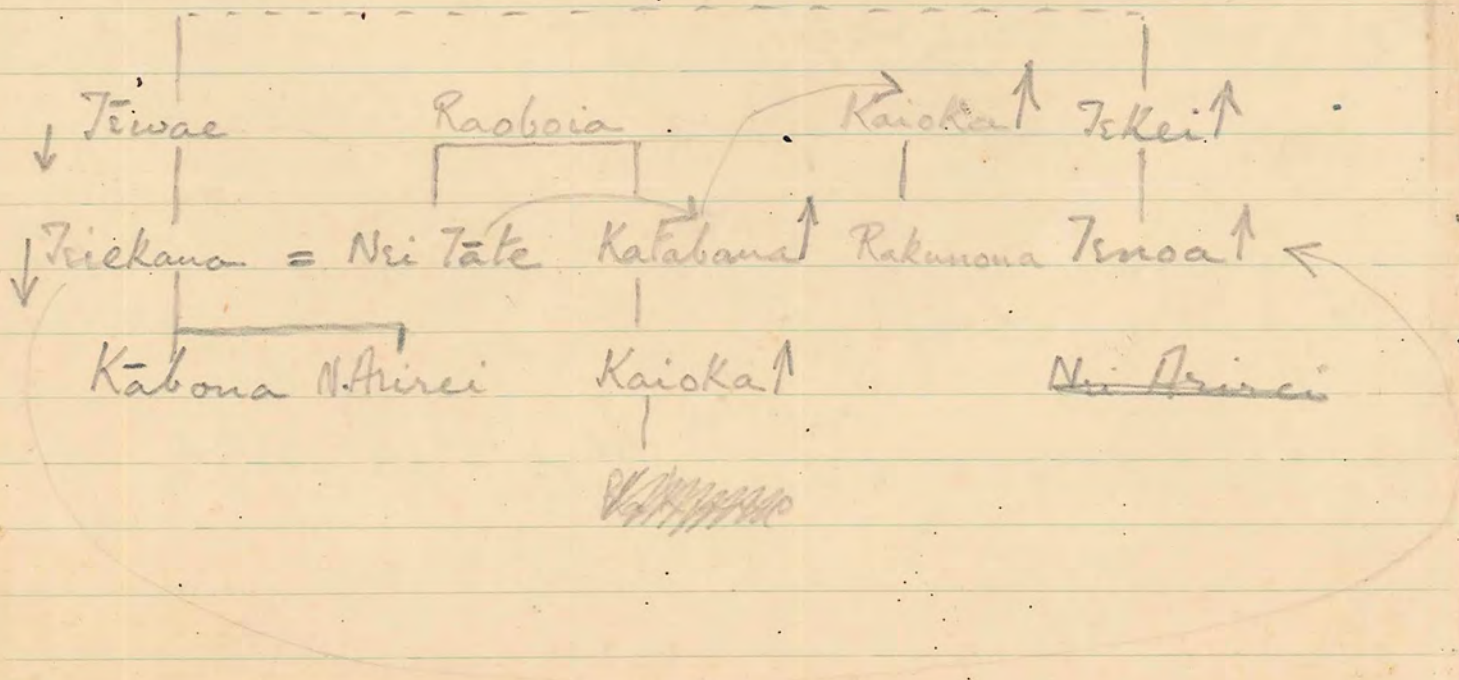 ↓ Tēwae Raoboia Kaioka ↑ Tekei ↑
↓ Teiekaua = Nei Tāte Katabaua ↑ Rakunona Tenoa ↑
Kābona N.Arirei Kaioka ↑ Nei Arirei